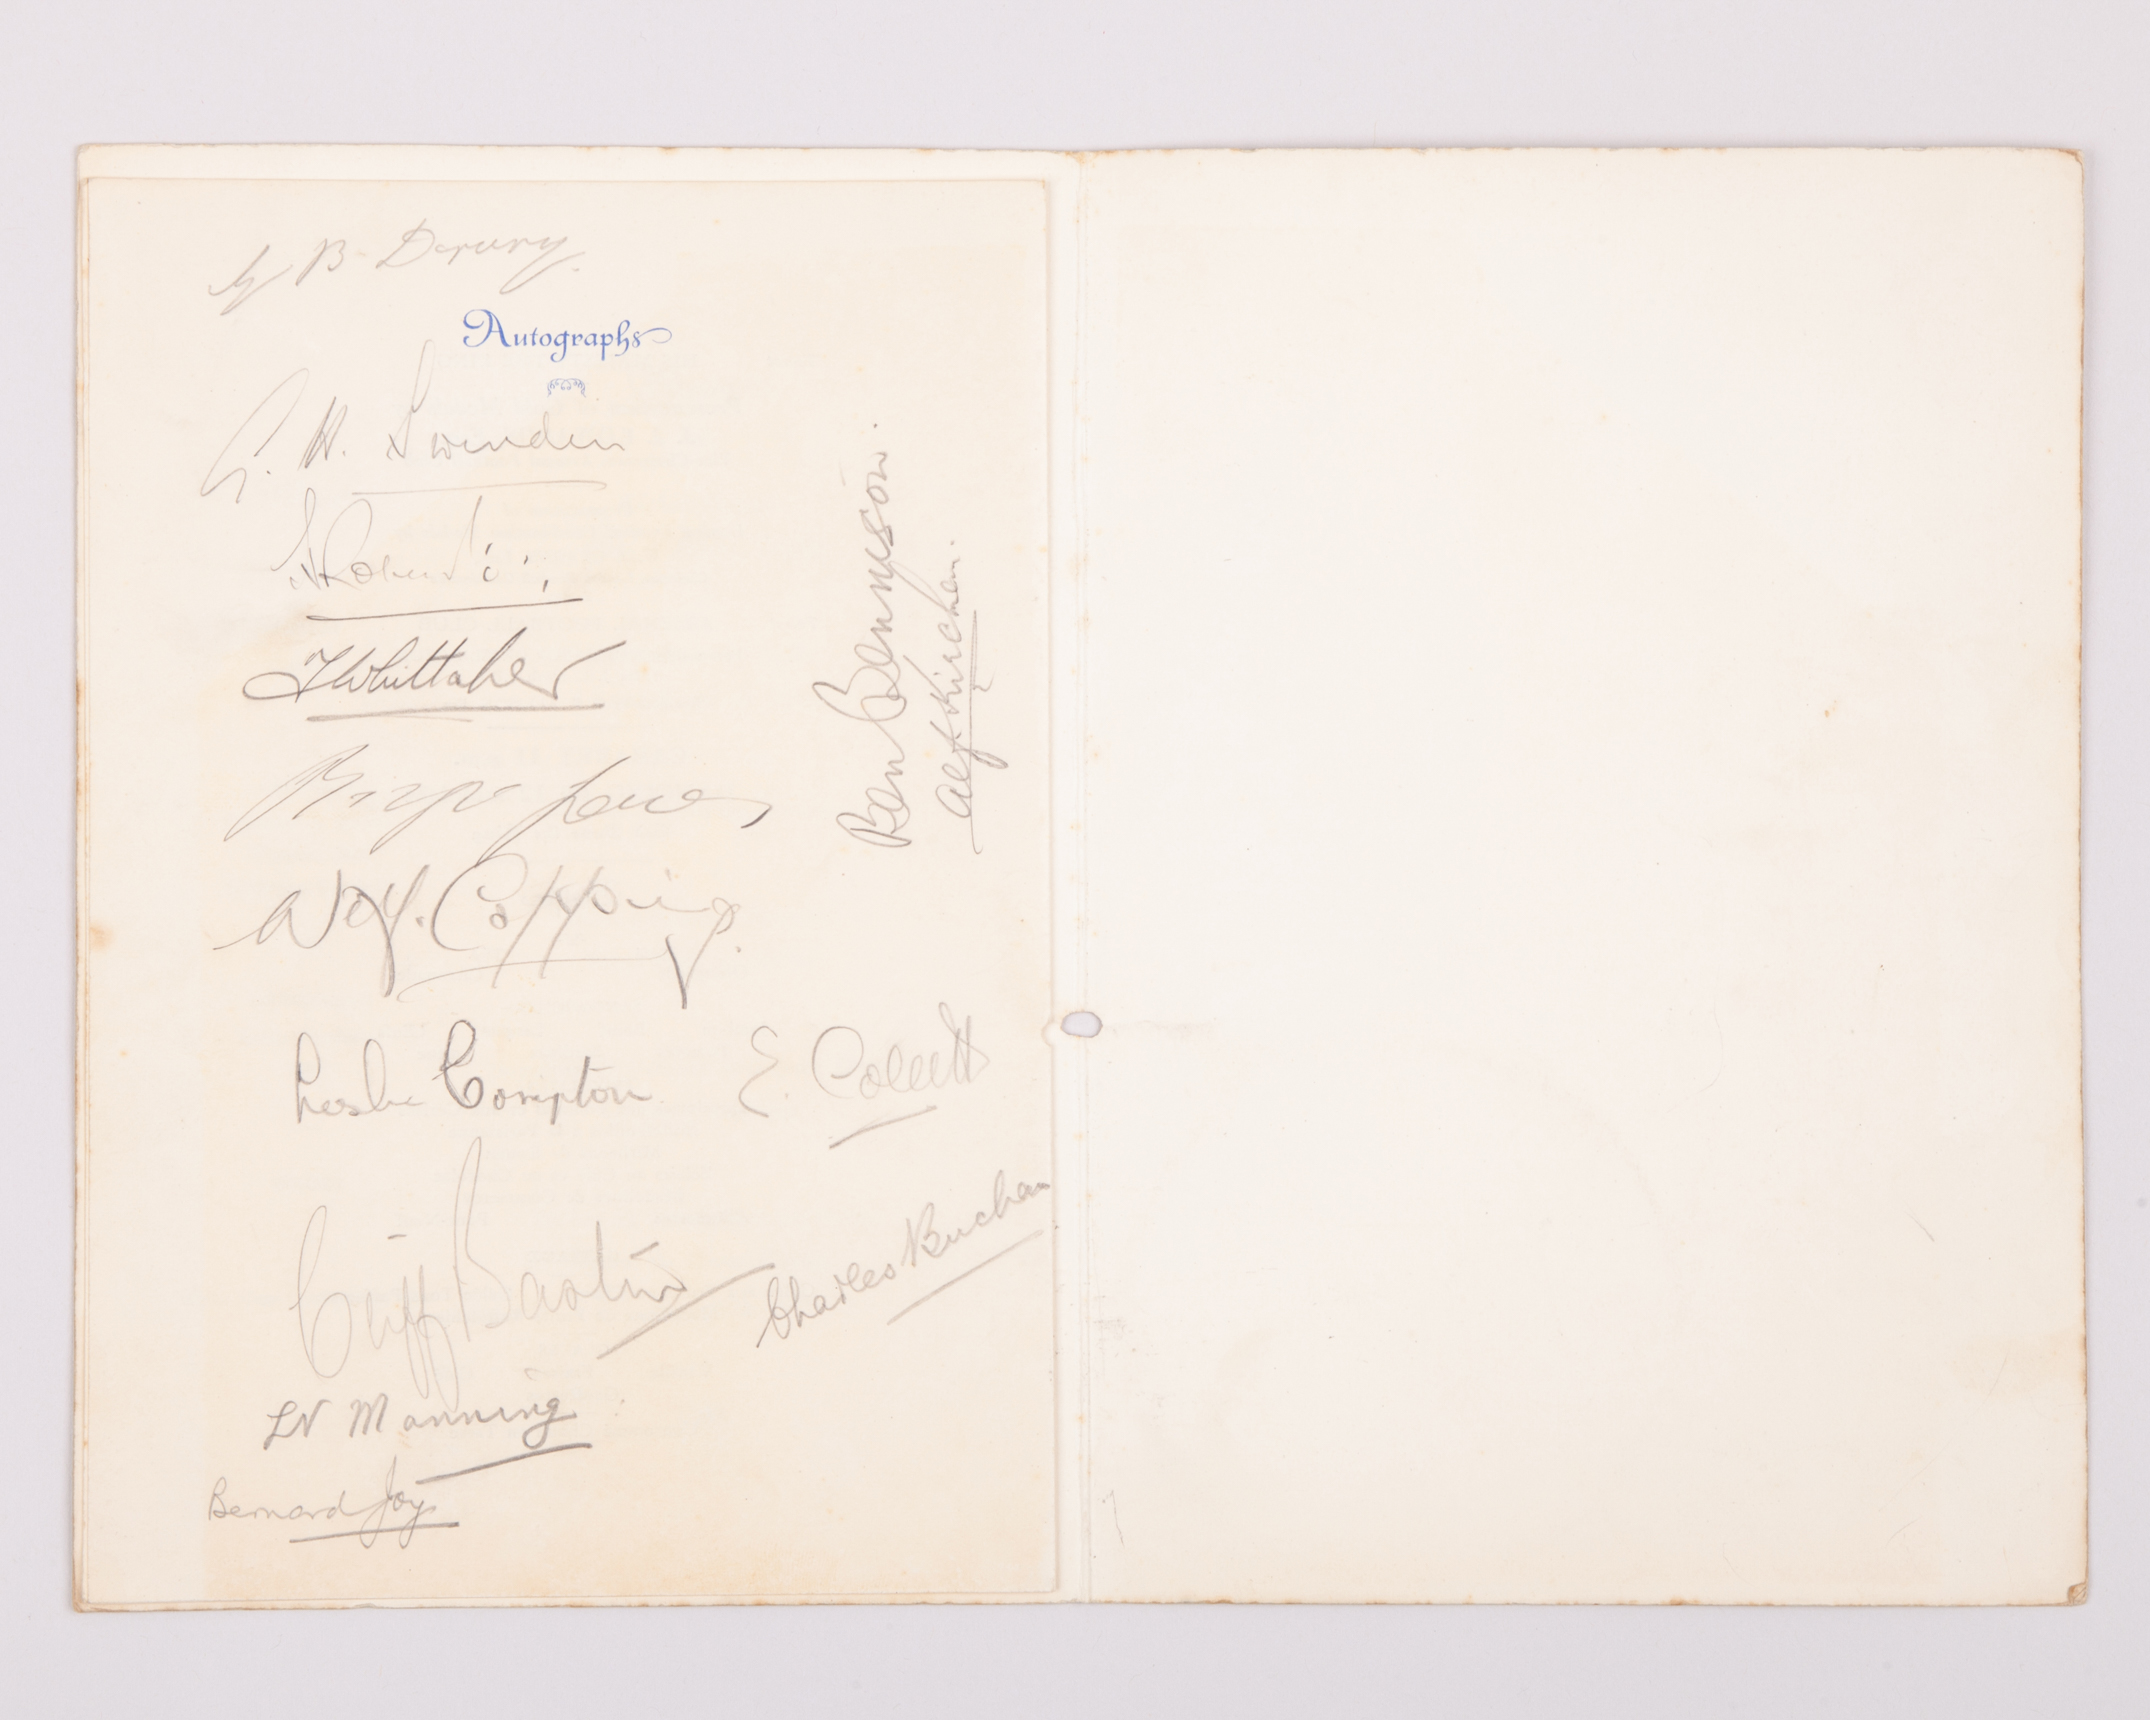 B. Drury
Autographs
G. H. Swindin
J Whittaker
Bryn Jones
Wilf. Copping.
Leslie Compton
E. Collett
Cliff Bastin
Charles Buchan
LV Manning
Bernard Joy
Ben Bennyson.
Alf Kirchen.